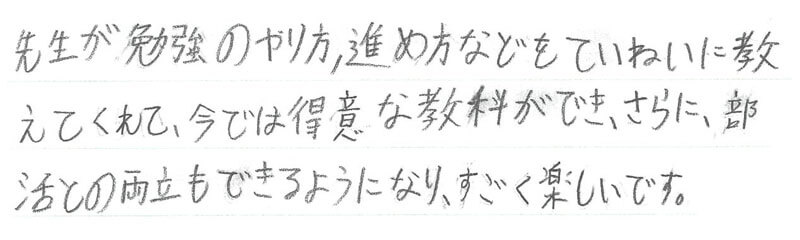 先生が勉強のやり方,進め方などをていねいに教
えてくれて、今では得意な教科ができ、さらに、部
活との両立もできるようになり、すごく楽しいです。